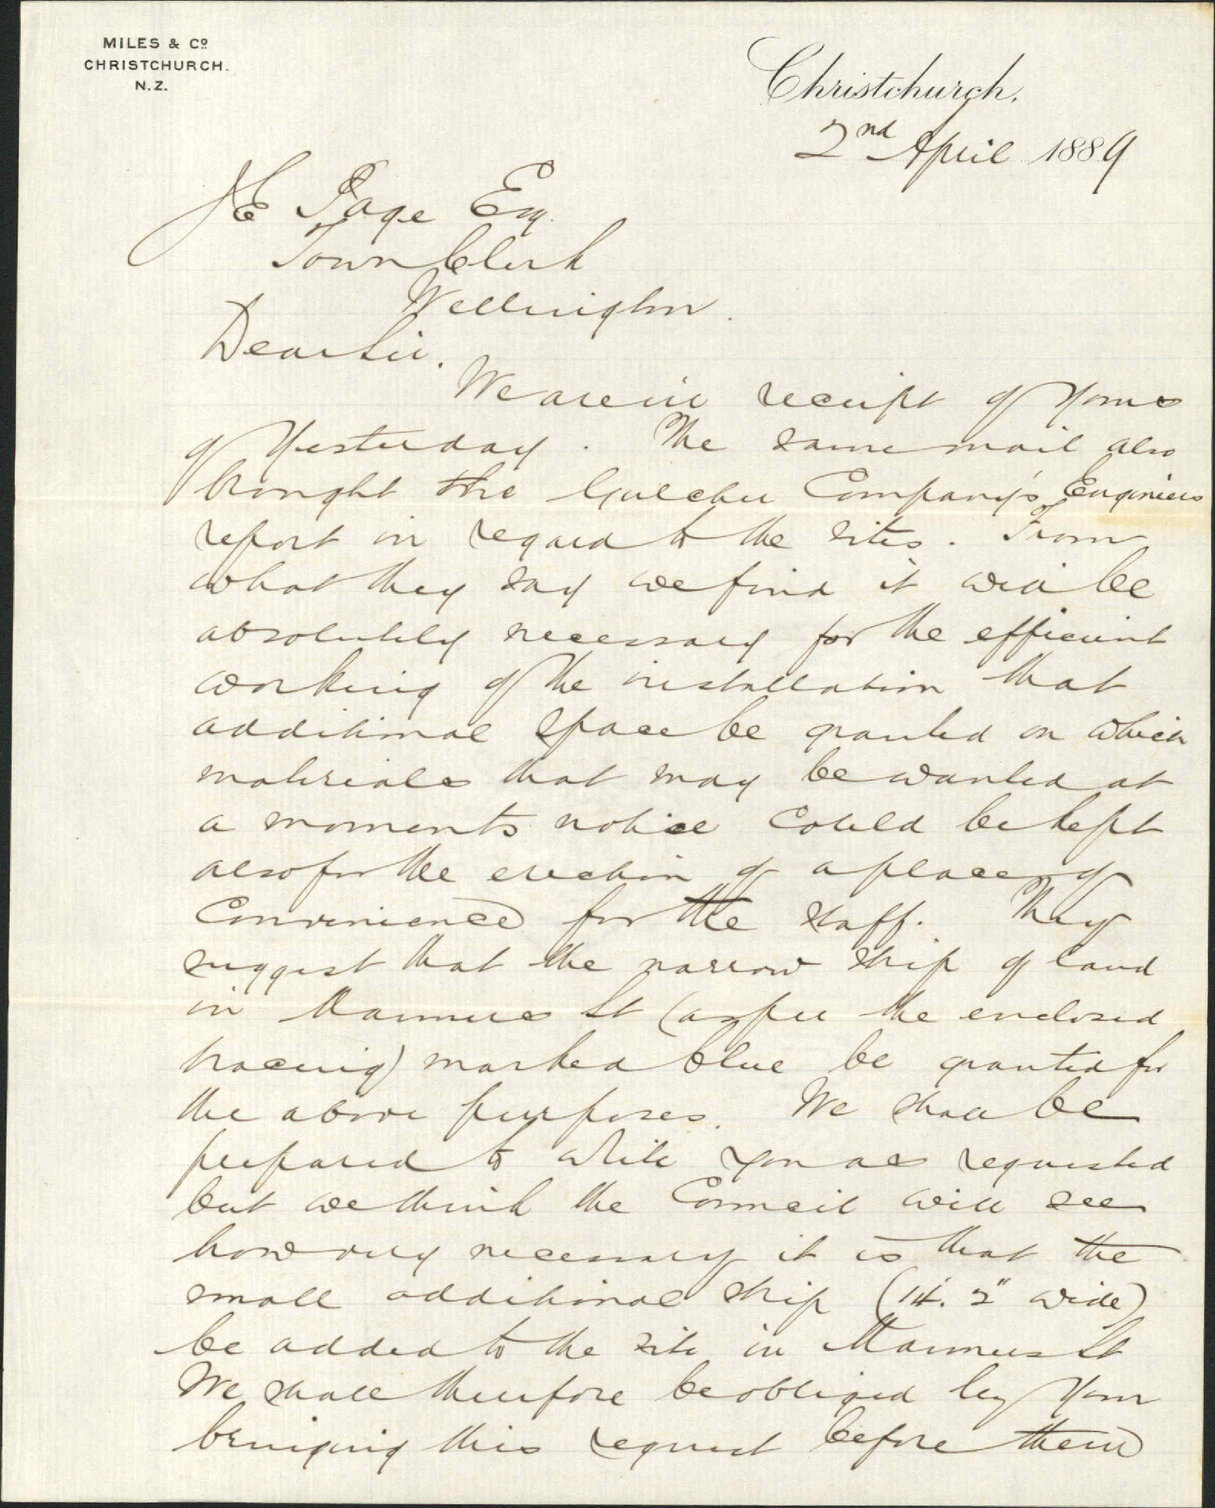 MILES & Co
CHRISTCHURCH.
N.Z.
Christchurch,
2nd April 1889
J E Page Esq.
Town Clerk
Wellington.
Dear Sir.
We are in receipt of yours
of yesterday. The same mail also
brought the Gulcher Company's Engineers
report in regard to the sites. From
what they say we find it will be
absolutely necessary for the efficient
working of the installation that
additional space be granted on which
materials that may be wanted at
a moments notice could be kept
also for the erection of a place of
Convenience for the staff. They
suggest that the narrow strip of land
in Manners St (as per the enclosed
tracing) marked blue be granted for
the above purposes. We shall be
prepared to write you as requested
but we think the Council will see
how very necessary it is that the
small additional strip (14'. 2" wide)
be added to the site in Manners St
We shall therefore be obliged by your
bringing this request before them